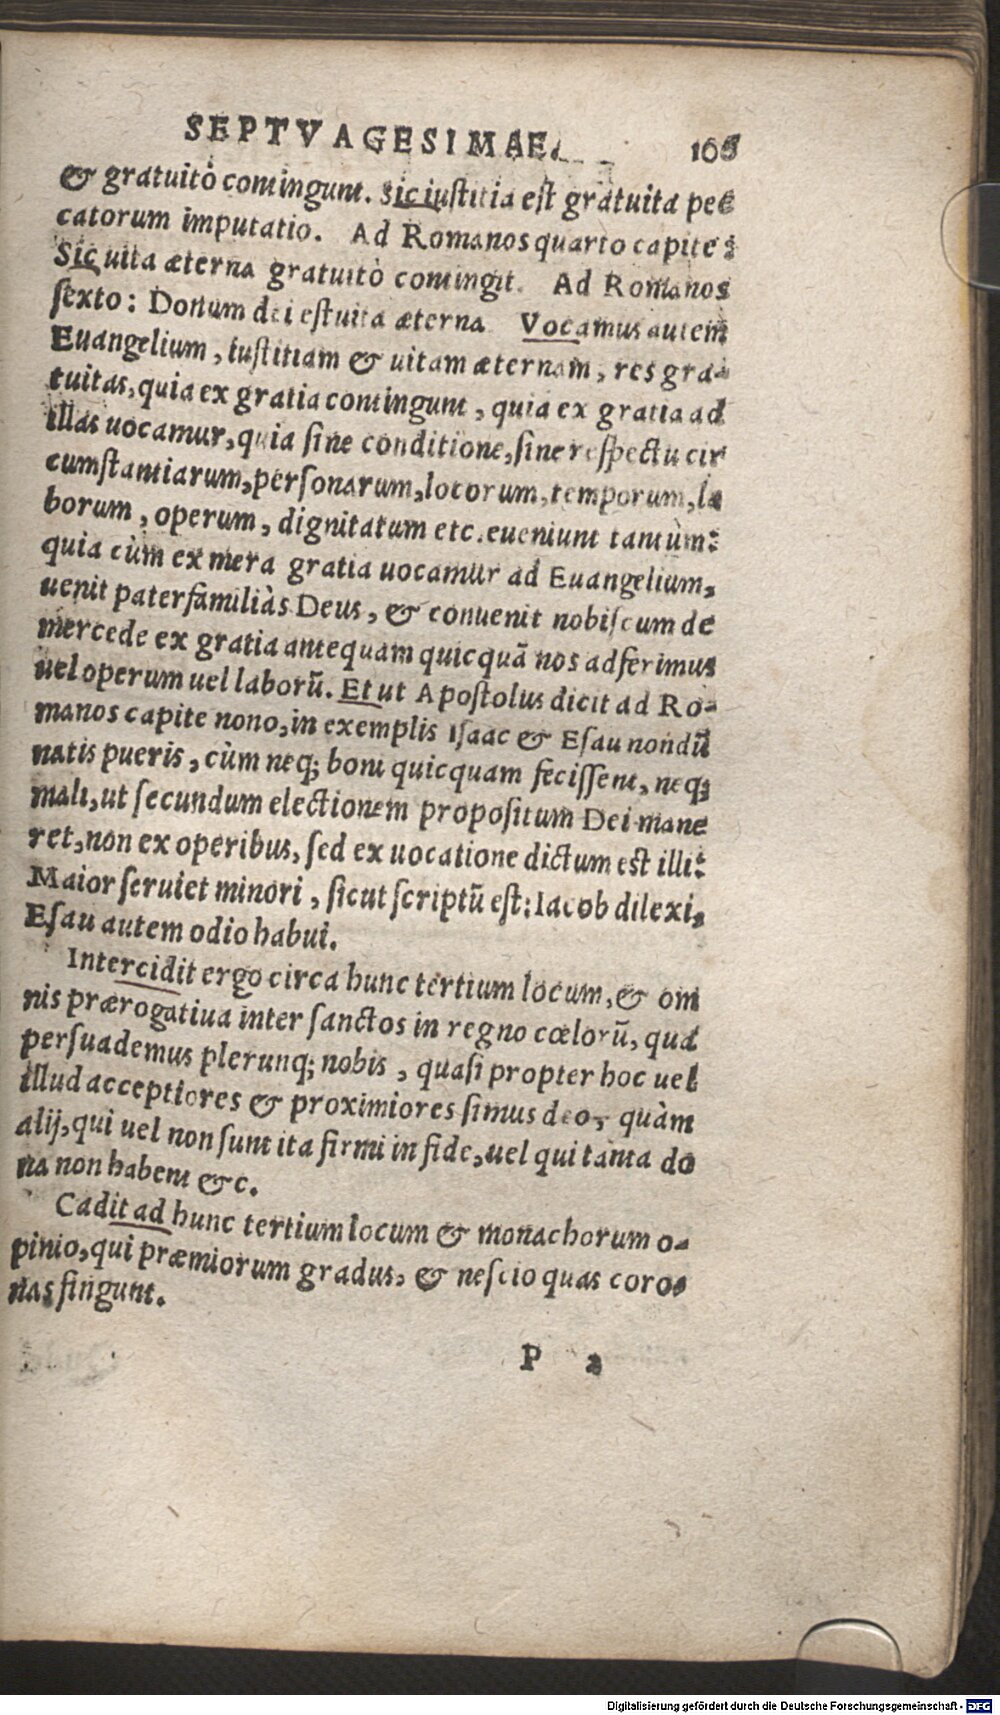 SEPTVAGESIMAE. 106
& gratuitò contingunt. Sic iustitia est gratuita pec
catorum imputatio. Ad Romanos quarto capite:
Sic uita æterna gratuitò contingit. Ad Romanos
sexto: Donum dei est uita æterna Vocamus autem
Euangelium, iustitiam & uitam æternam, res gra-
tuitas, quia ex gratia contingunt, quia ex gratia ad
illas uocamur, quia sine conditione, sine respectu cir
cumstantiarum, personarum, locorum, temporum, la
borum, operum, dignitatum etc. eueniunt tantùm:
quia cùm ex mera gratia uocamur ad Euangelium,
uenit paterfamiliàs Deus, & conuenit nobiscum de
mercede ex gratia antequam quicquā nos adferimus
uel operum uel laborū. Et ut Apostolus dicit ad Ro-
manos capite nono, in exemplis Isaac & Esau nondū
natis pueris, cùm neq; boni quicquam fecissent, neq;
mali, ut secundum electionem propositum Dei mane
ret, non ex operibus, sed ex uocatione dictum est illi:
Maior seruiet minori, sicut scriptū est: Iacob dilexi,
Esau autem odio habui.
Intercidit ergo circa hunc tertium locum, & om
nis prærogatiua inter sanctos in regno cœlorū, qua
persuademus plerunq; nobis, quasi propter hoc uel
illud acceptiores & proximiores simus deo, quàm
alij, qui uel non sunt ita firmi in fide, uel qui tanta do
na non habent &c.
Cadit ad hunc tertium locum & monachorum o-
pinio, qui præmiorum gradus, & nescio quas coro-
nas fingunt.
P 2
Digitalisierung gefördert durch die Deutsche Forschungsgemeinschaft - DFG